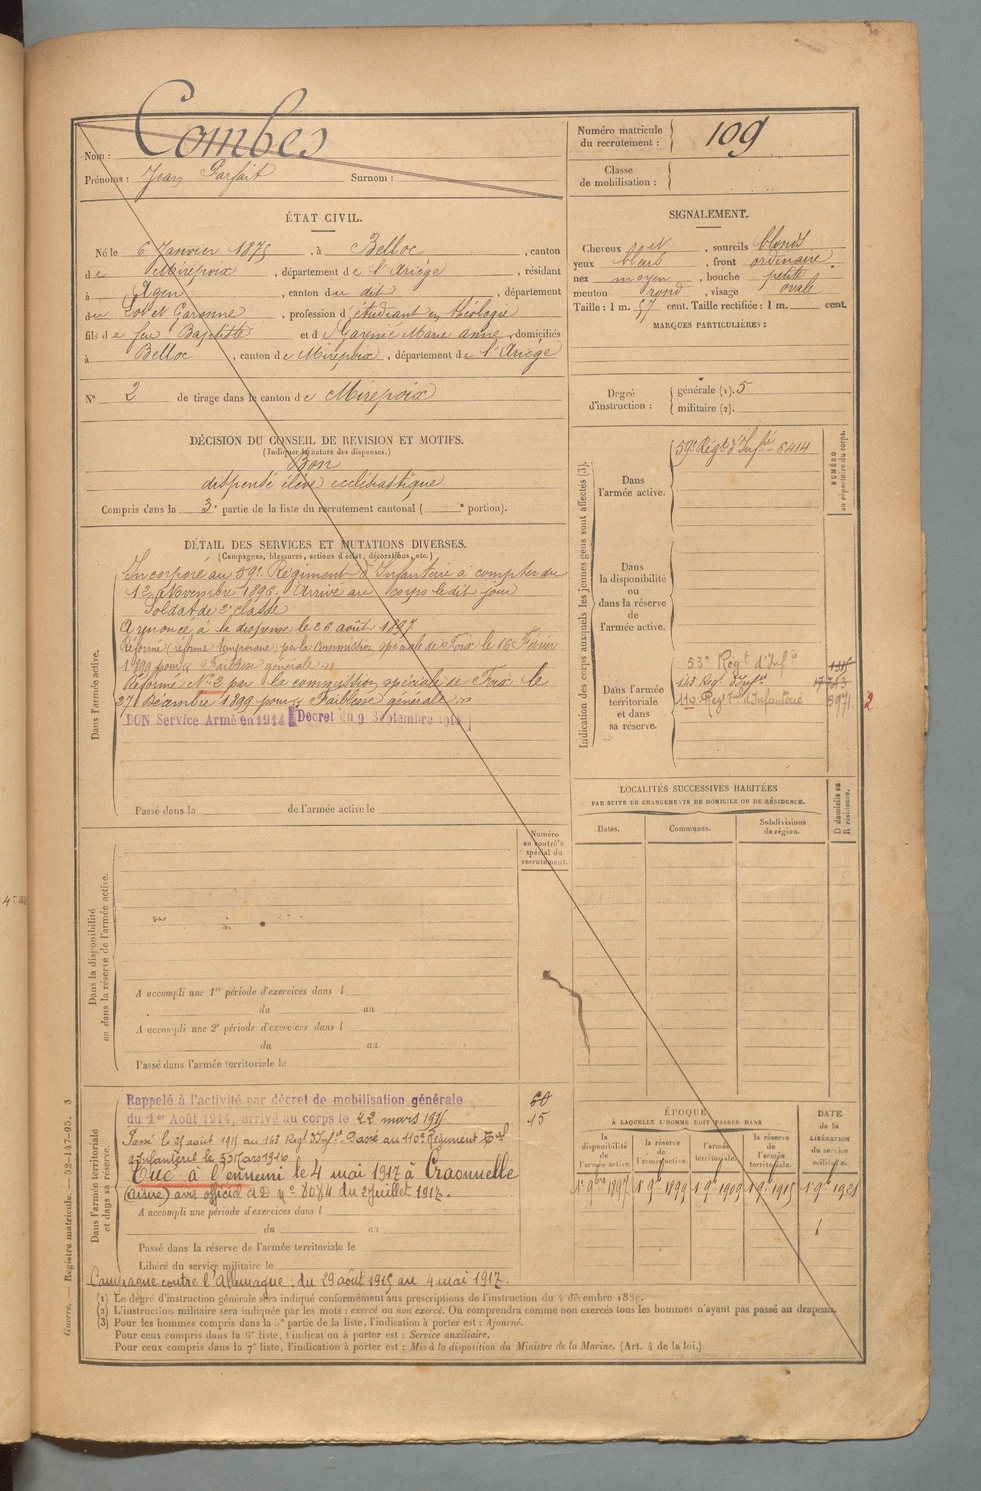 Nom : Combes
Prénoms : Jean Parfait Surnom :
Numéro matricule du recrutement : 109
Classe de mobilisation :
ÉTAT CIVIL.
Né le 6 Janvier 1875, à Belloc, canton
de Mirepoix, département de l'Ariège, résidant
à Agen, canton du dit, département
du Lot et Garonne, profession d'étudiant en théologie
fils de feu Baptiste et de Gaynié Marie Anne, domiciliés
à Belloc, canton de Mirepoix, département de l'Ariège
N° 2 de tirage dans le canton de Mirepoix
SIGNALEMENT.
Cheveux et, sourcils blonds
yeux bleus, front ordinaire
nez moyen, bouche petite
menton rond, visage ovale
Taille : 1 m. 57 cent. Taille rectifiée : 1 m. cent.
MARQUES PARTICULIÈRES :
Degré d'instruction : générale (1). 5
militaire (2).
DÉCISION DU CONSEIL DE REVISION ET MOTIFS.
(Indiquer la nature des dispenses.)
Bon
dispensé élève ecclésiastique
Compris dans la 3e partie de la liste du recrutement cantonal ( e portion).
DÉTAIL DES SERVICES ET MUTATIONS DIVERSES.
(Campagnes, blessures, actions d'éclat, décorations, etc.)
Dans l'armée active.
Incorporé au 59e Régiment d'Infanterie à compter du
12 Novembre 1896. Arrivé au corps le dit jour
Soldat de 2e classe
A renoncé à la dispense le 26 août 1897
Réformé (réforme temporaire) par la Commission spéciale de Foix le 16 Février
1899 pour « Faiblesse générale »
Réformé N° 2 par la commission spéciale de Foix le
27 Décembre 1899 pour « Faiblesse générale »
BON Service Armé en 1914 Décret du 9 Septembre 1914
Passé dans la de l'armée active le
Indication des corps auxquels les jeunes gens sont affectés (3).
NUMÉRO au répertoire du corps.
Dans l'armée active.
59e Régt d'Infie 6414
Dans la disponibilité ou dans la réserve de l'armée active.
Dans l'armée territoriale et dans sa réserve.
53e Régt d'Infie
143 Régt d'Infie 17743
110 Regiment d'Infanterie 8971 2
LOCALITÉS SUCCESSIVES HABITÉES
PAR SUITE DE CHANGEMENTS DE DOMICILE OU DE RÉSIDENCE.
Dates. Communes. Subdivisions de région.
D domicile ou R résidence.
Numéro au contrôle spécial du recrutement.
Dans la disponibilité ou dans la réserve de l'armée active.
A accompli une 1re période d'exercices dans l
du au
A accompli une 2e période d'exercices dans l
du au
Passé dans l'armée territoriale le
Dans l'armée territoriale et dans sa réserve.
Rappelé à l'activité par décret de mobilisation générale 60
du 1er Août 1914, arrivé au corps le 22 mars 1915 15
Passé le 25 août 1915 au 143 Régt d'Infie. Passé au 110e Régiment
d'Infanterie le 3 Mars 1916
Tué à l'ennemi le 4 mai 1917 à Craonnelle
(Aisne) avis officiel AD n° 8084 du 2 juillet 1917.
A accompli une période d'exercices dans l
du au
Passé dans la réserve de l'armée territoriale le
Libéré du service militaire le
Campagne contre l'Allemagne : du 29 août 1915 au 4 mai 1917.
ÉPOQUE
À LAQUELLE L'HOMME DOIT PASSER DANS
la disponibilité de l'armée active. la réserve de l'armée active. l'armée territoriale. la réserve de l'armée territoriale.
DATE de la LIBÉRATION du service militaire.
1er 9bre 1897 1er 9bre 1899 1er 9bre 1909 1er 9bre 1915 1er 9bre 1921
(1) Le degré d'instruction générale sera indiqué conformément aux prescriptions de l'instruction du 4 décembre 1889.
(2) L'instruction militaire sera indiquée par les mots : exercé ou non exercé. On comprendra comme non exercés tous les hommes n'ayant pas passé au drapeau.
(3) Pour les hommes compris dans la 5e partie de la liste, l'indication à porter est : Ajourné.
Pour ceux compris dans la 6e liste, l'indication à porter est : Service auxiliaire.
Pour ceux compris dans la 7e liste, l'indication à porter est : Mis à la disposition du Ministre de la Marine. (Art. 4 de la loi.)
Guerre. — Registre matricule. — 32-117-95. 3